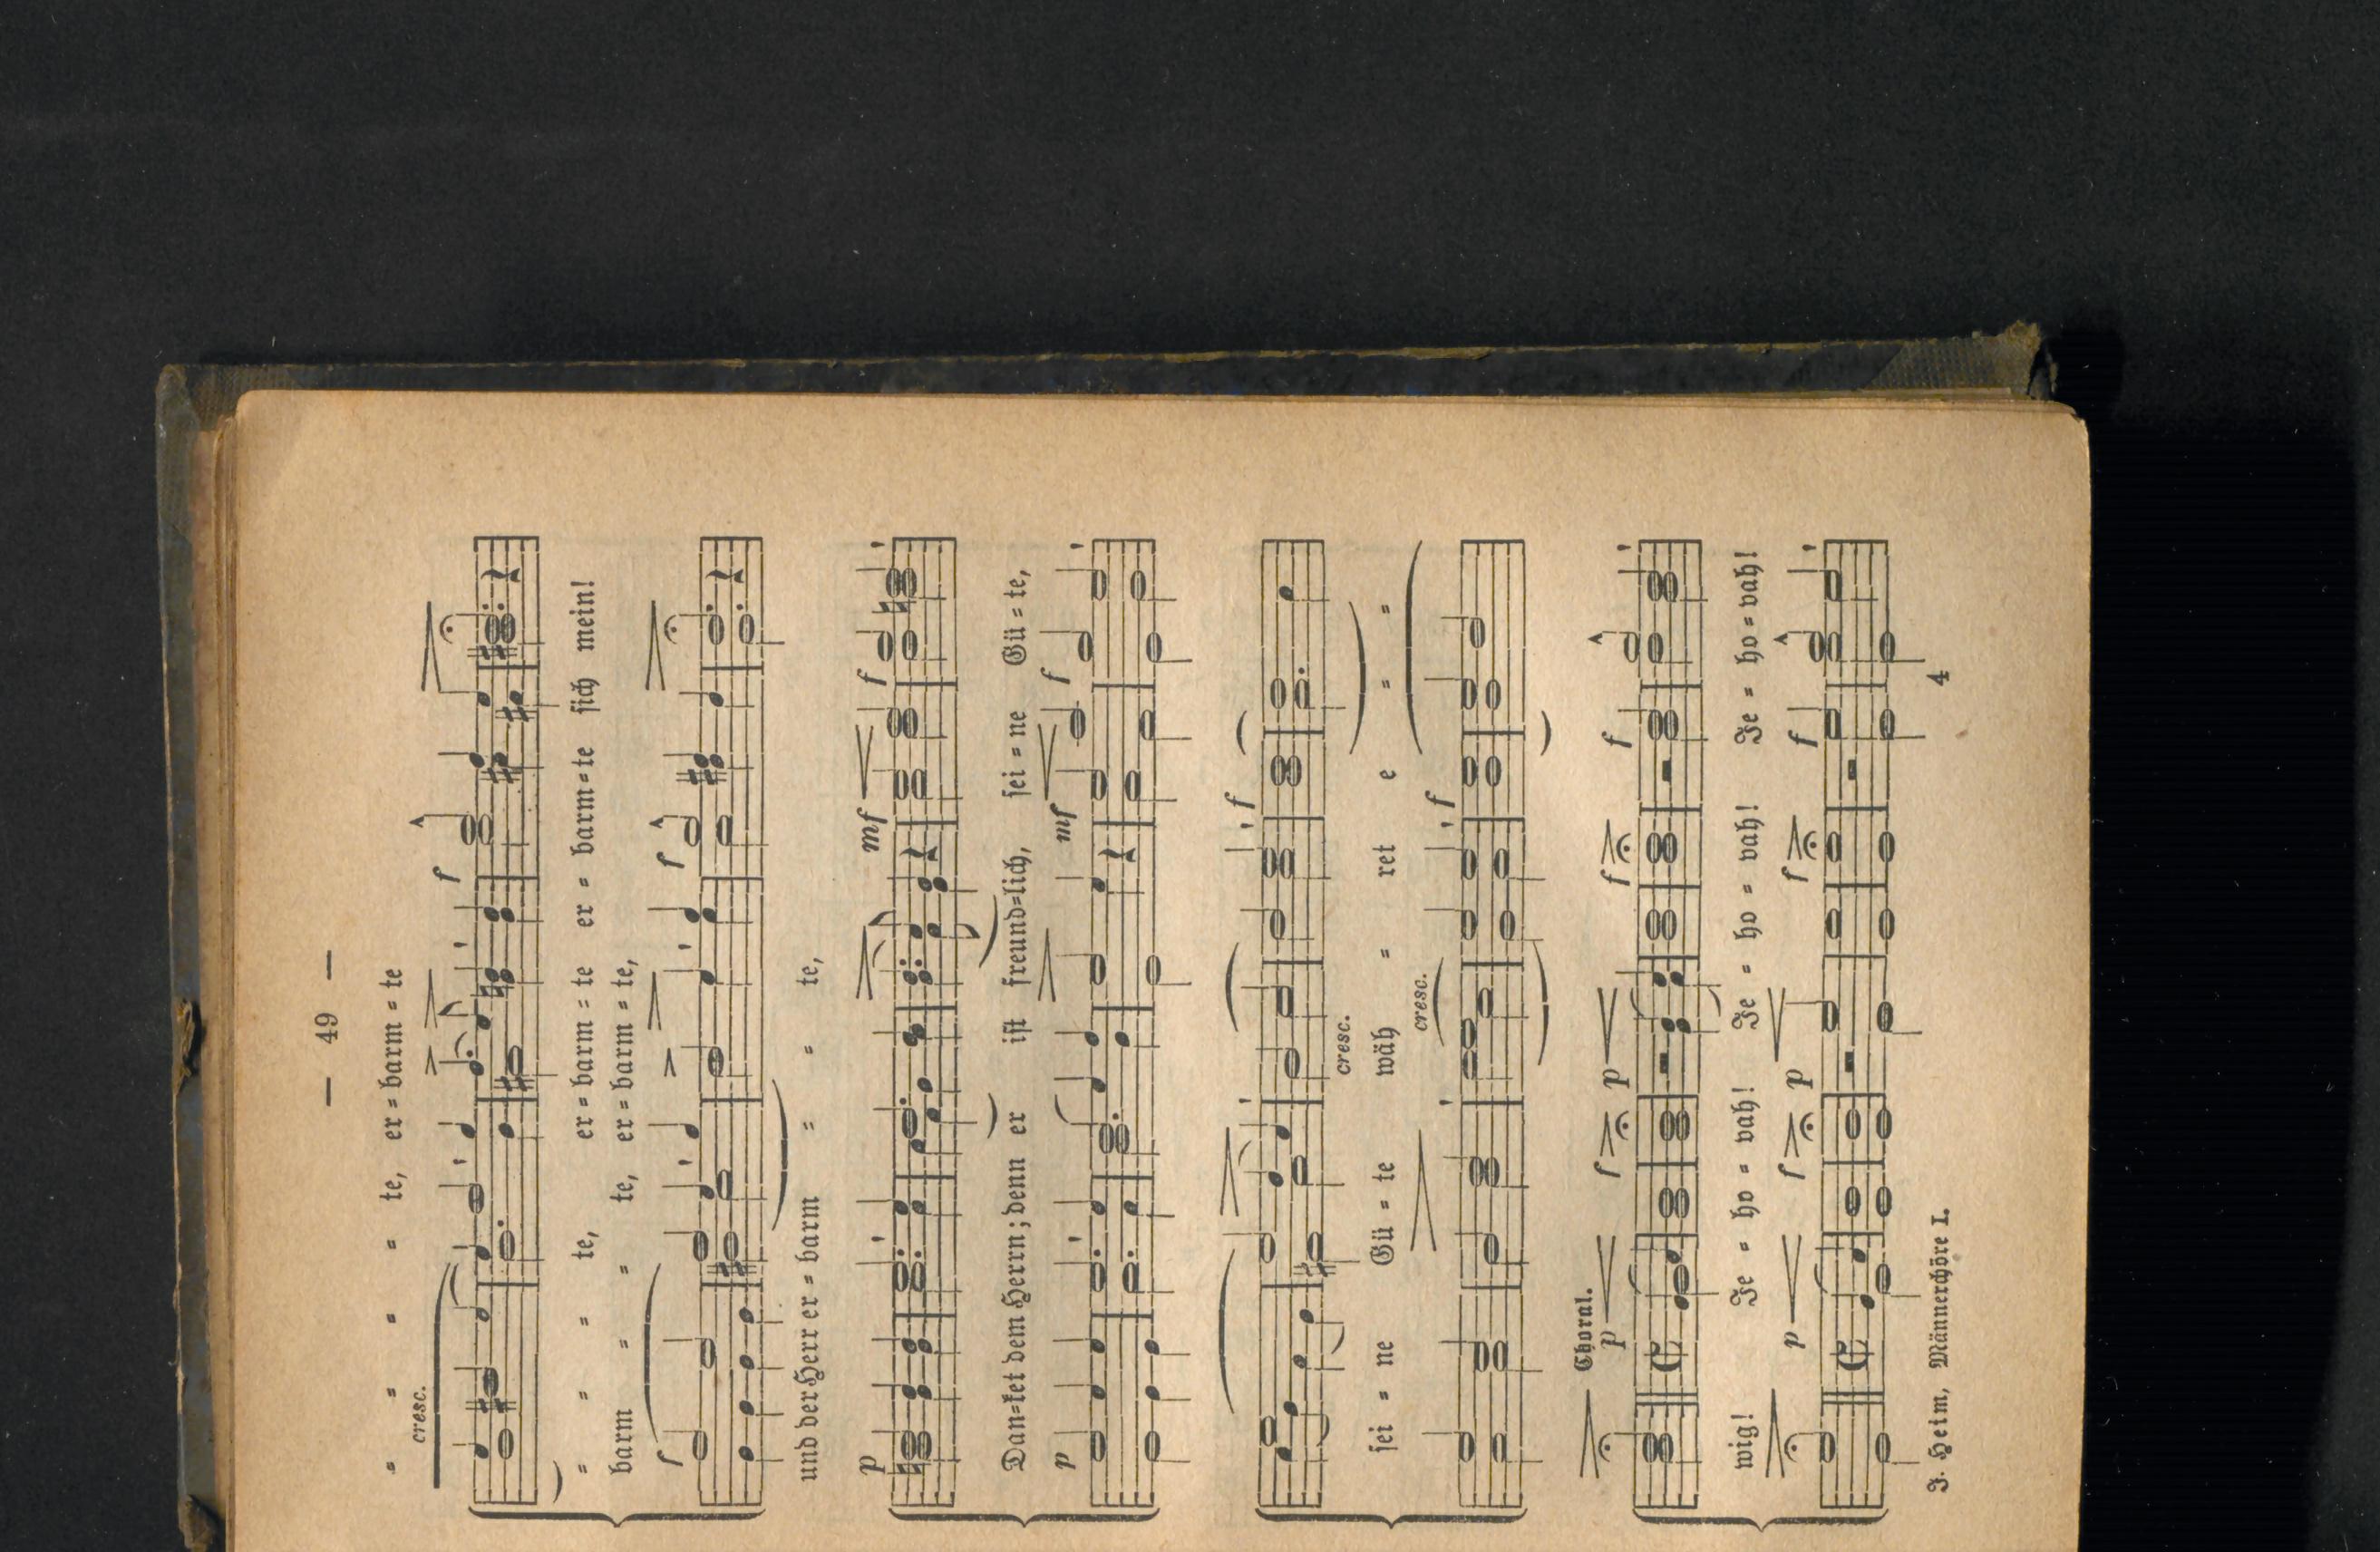 — 49 —
= = = = te, er = barm = te
cresc.
f
= = = te, er = barm = te er = barm = te sich mein!
barm = = te, er = barm = te,
f f
und der Herr er = barm = = te,
p mf f
Dan=ket dem Herrn; denn er ist freund=lich, sei = ne Gü = te,
p mf f
f
cresc.
sei = ne Gü = te wäh = ret e = =
cresc. f
Choral.
p f p f f
wig! Je = ho = vah! Je = ho = vah! Je = ho = vah!
p f p f f
J. Heim, Männerchöre I. 4